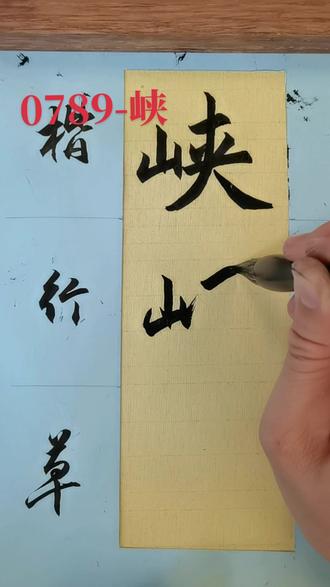 0789-峡
楷 峡
行 山一
草